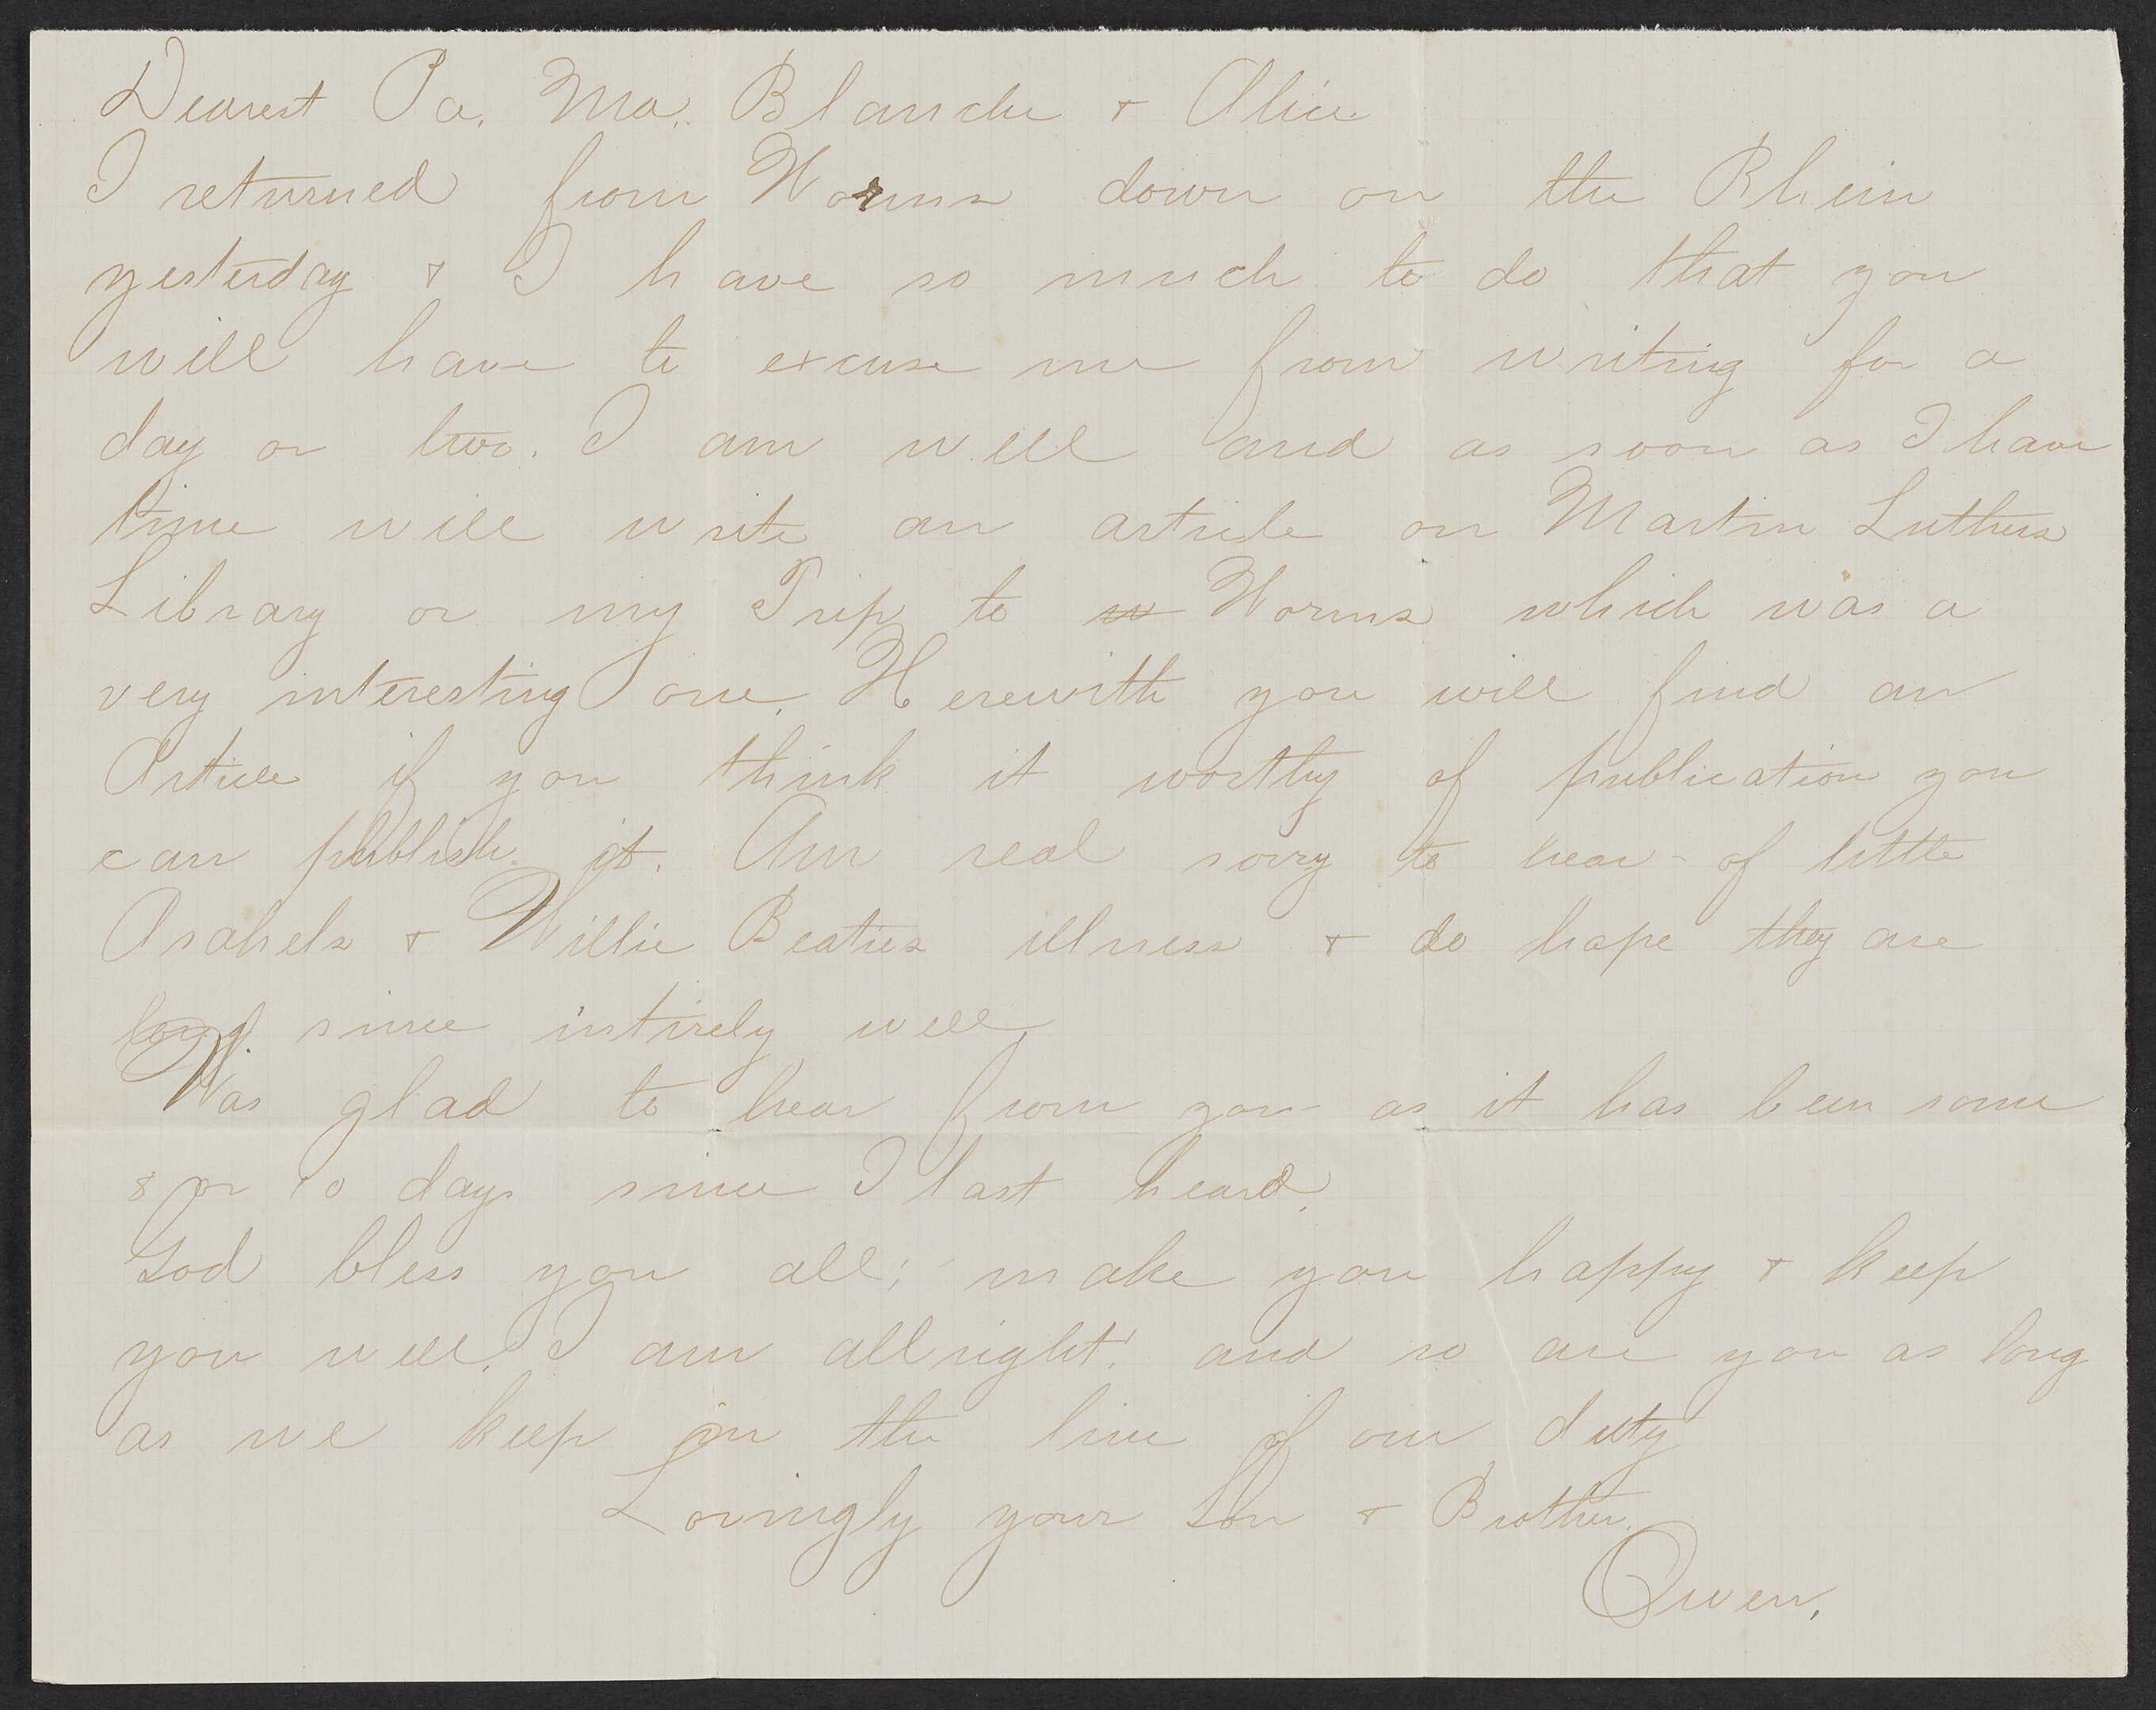 Dearest Pa, Ma, Blanche & Alice
I returned from Worms down on the Rhein
yesterday & I have so much to do that you
will have to excuse me from writing for a
day or two. I am well and as soon as I have
time will write an article on Martin Luthers
Library or my Trip to w Worms which was a
very interesting one. Herewith you will find an
Article if you think it worthy of publication you
can publish it. Am real sorry to hear - of little
Asahels & Willie Beaties illness & do hope they are
long since intirely well.
Was glad to hear from you as it has been some
8 or 10 days since I last heard.
God bless you all; make you happy & keep
you well. I am allright! and so are you as long
as we keep in the line of our duty
Lovingly your Son & Brother.
Owen.